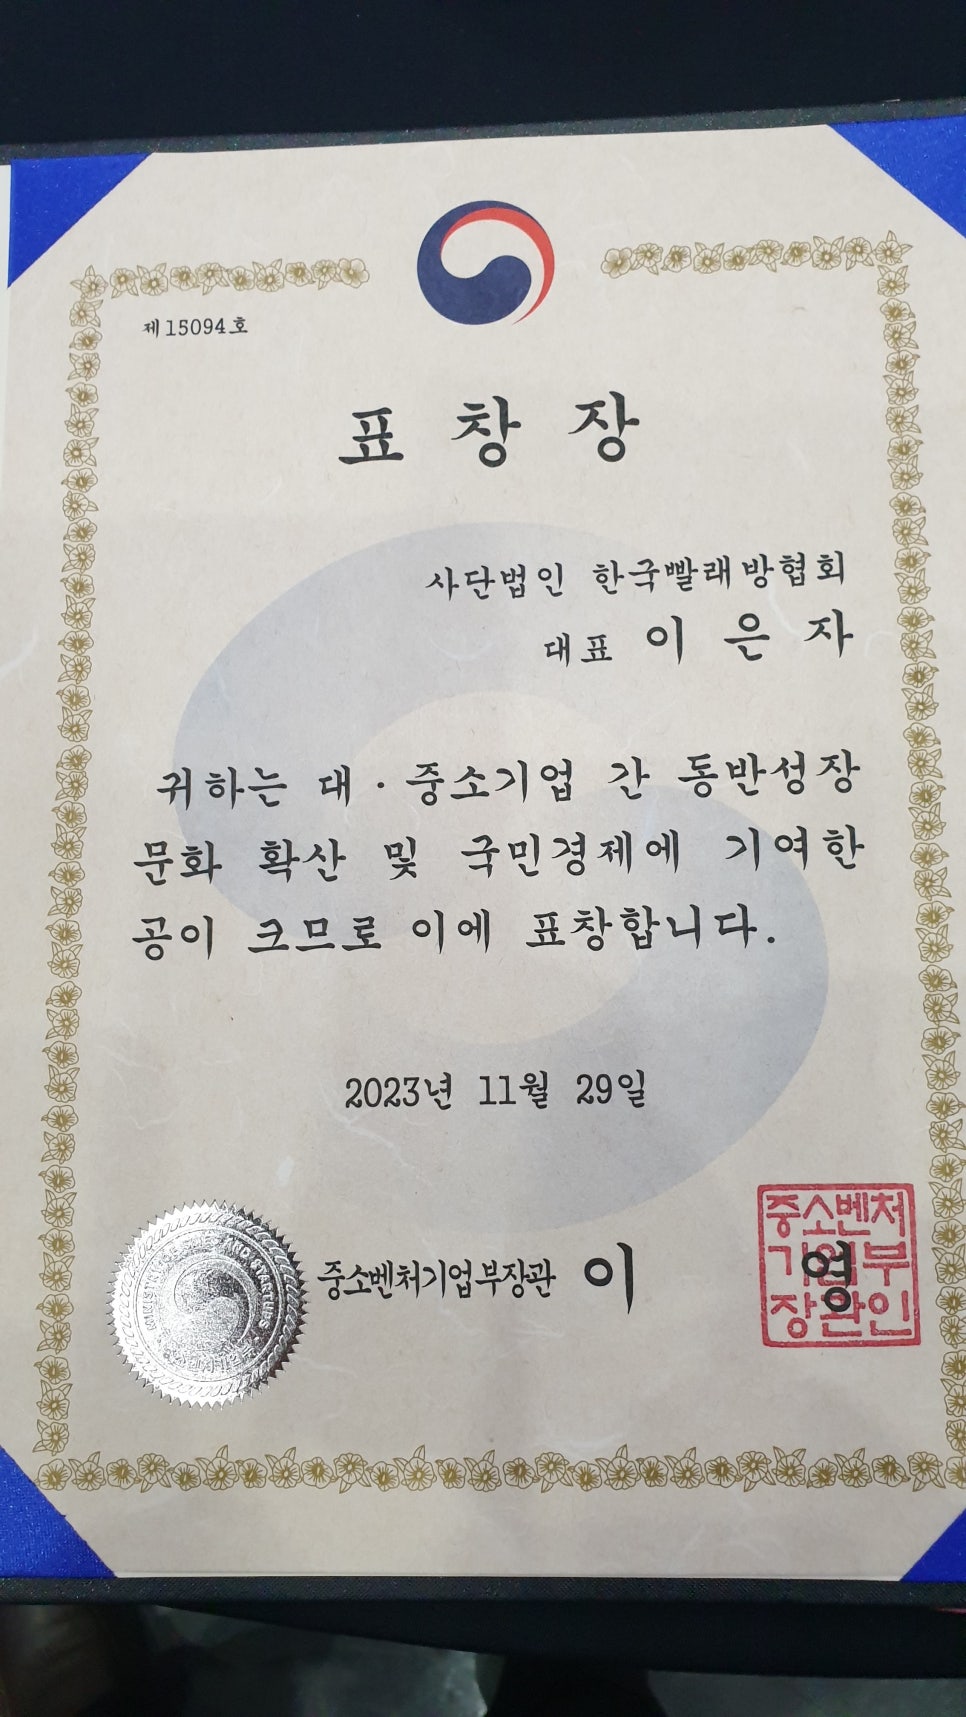 제15094호
표 창 장
사단법인 한국빨래방협회
대표 이 은 자
귀하는 대·중소기업 간 동반성장
문화 확산 및 국민경제에 기여한
공이 크므로 이에 표창합니다.
2023년 11월 29일
중소벤처기업부장관 이 영
중소벤처
기업부
장관인
AND STARTUPS